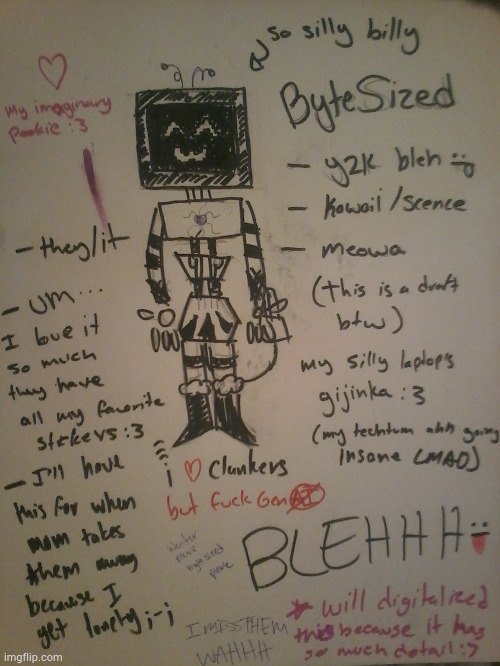 so silly billy
my imaginary
pookie :3
ByteSized
- y2k bleh
- kawaii/scence
- meowa
(this is a draft
btw)
my silly laptop's
gijinka :3
(my techtum ahh going
insane LMAO)
- they/it
- um...
I love it
so much
they have
all my favorite
stickers :3
- I'll have
this for when
mom takes
them away
because I
get lonely ;-;
i ♡ clankers
but fuck Gen AI
BLEHHH
I MISS THEM
WAHHH
* will digitalized
this because it has
so much detail :>
imgflip.com